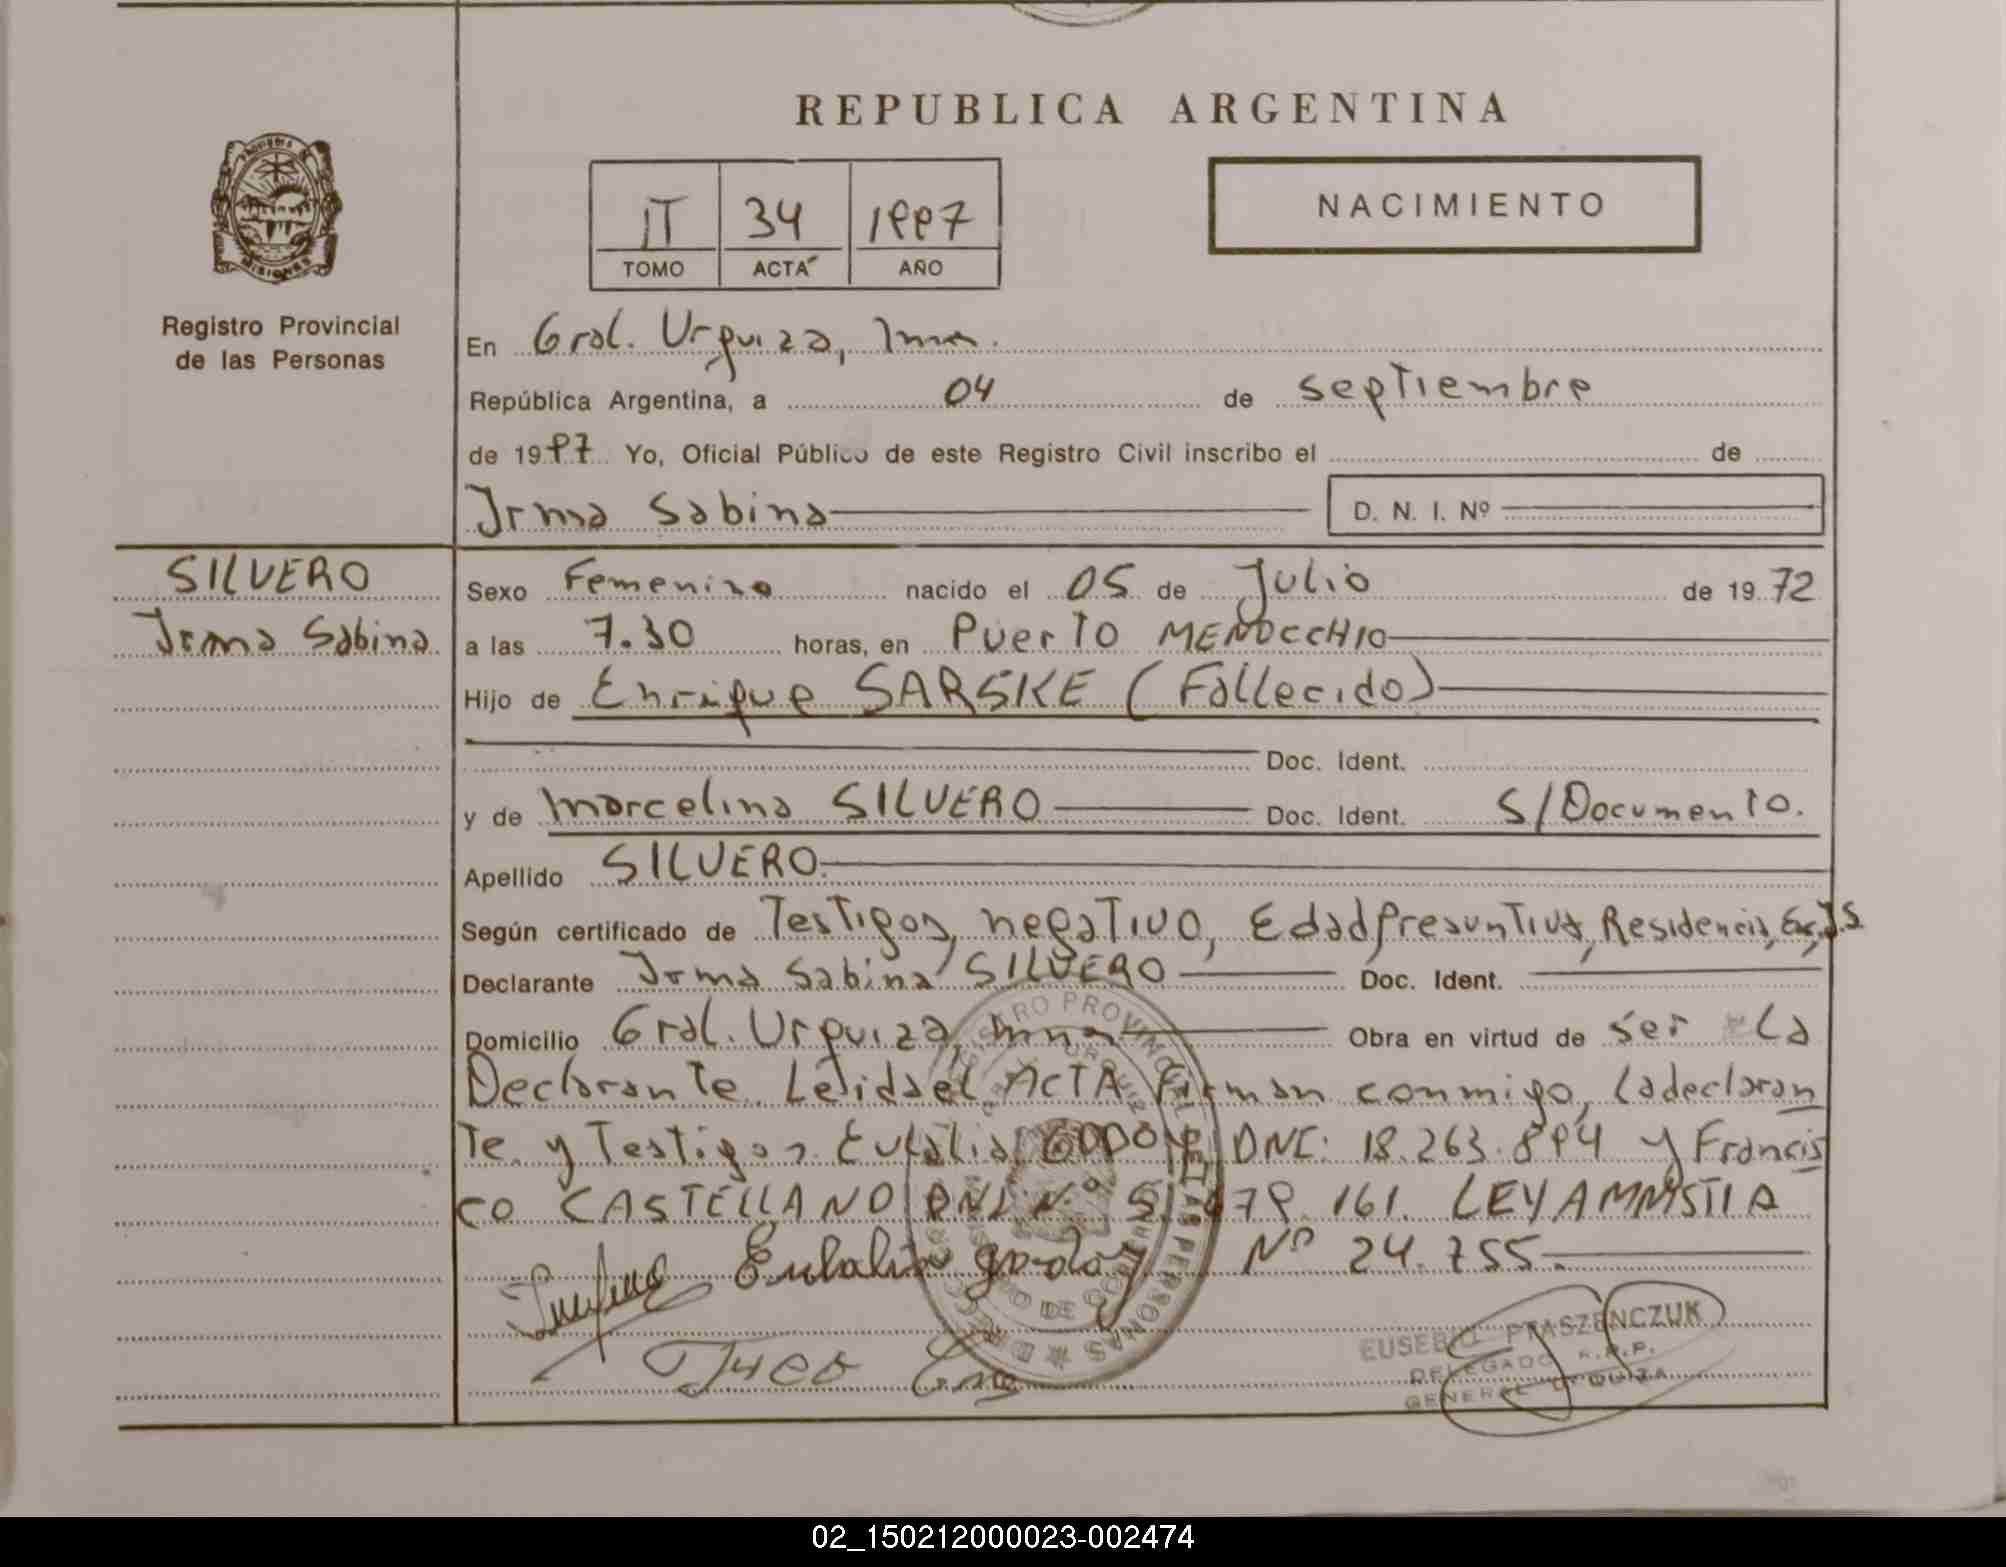 REPUBLICA ARGENTINA
PROVINCIA DE
MISIONES
Registro Provincial
de las Personas
IT 34 1997
TOMO ACTA AÑO
NACIMIENTO
En Gral. Urquiza, Mnes.
República Argentina, a 04 de septiembre
de 1997 Yo, Oficial Público de este Registro Civil inscribo el de
Irma Sabina D. N. I. Nº
SILVERO
Irma Sabina
Sexo Femenino nacido el 05 de Julio de 1972
a las 7.30 horas, en Puerto MENOCCHIO
Hijo de Enrique SARSKE (Fallecido)
Doc. Ident.
y de Marcelina SILVERO Doc. Ident. S/Documento.
Apellido SILVERO.
Según certificado de Testigos, negativo, Edad Presuntiva, Residencia,
Declarante Irma Sabina SILVERO Doc. Ident.
Domicilio Gral. Urquiza, Mnes Obra en virtud de ser La
Declarante Leida el ACTA Firman conmigo, la declaran
te y Testigos Eulalia GODOY DNI: 18.263.894 y Francis
co CASTELLANO DNI Nº 161. LEY AMNISTIA
Nº 24.755.
Eulalia godoy
REGISTRO PROVINCIAL DE LAS PERSONAS
EUSEBIO PTASZENCZUK
DELEGADO R.P.P.
GENERAL URQUIZA
02_150212000023-002474